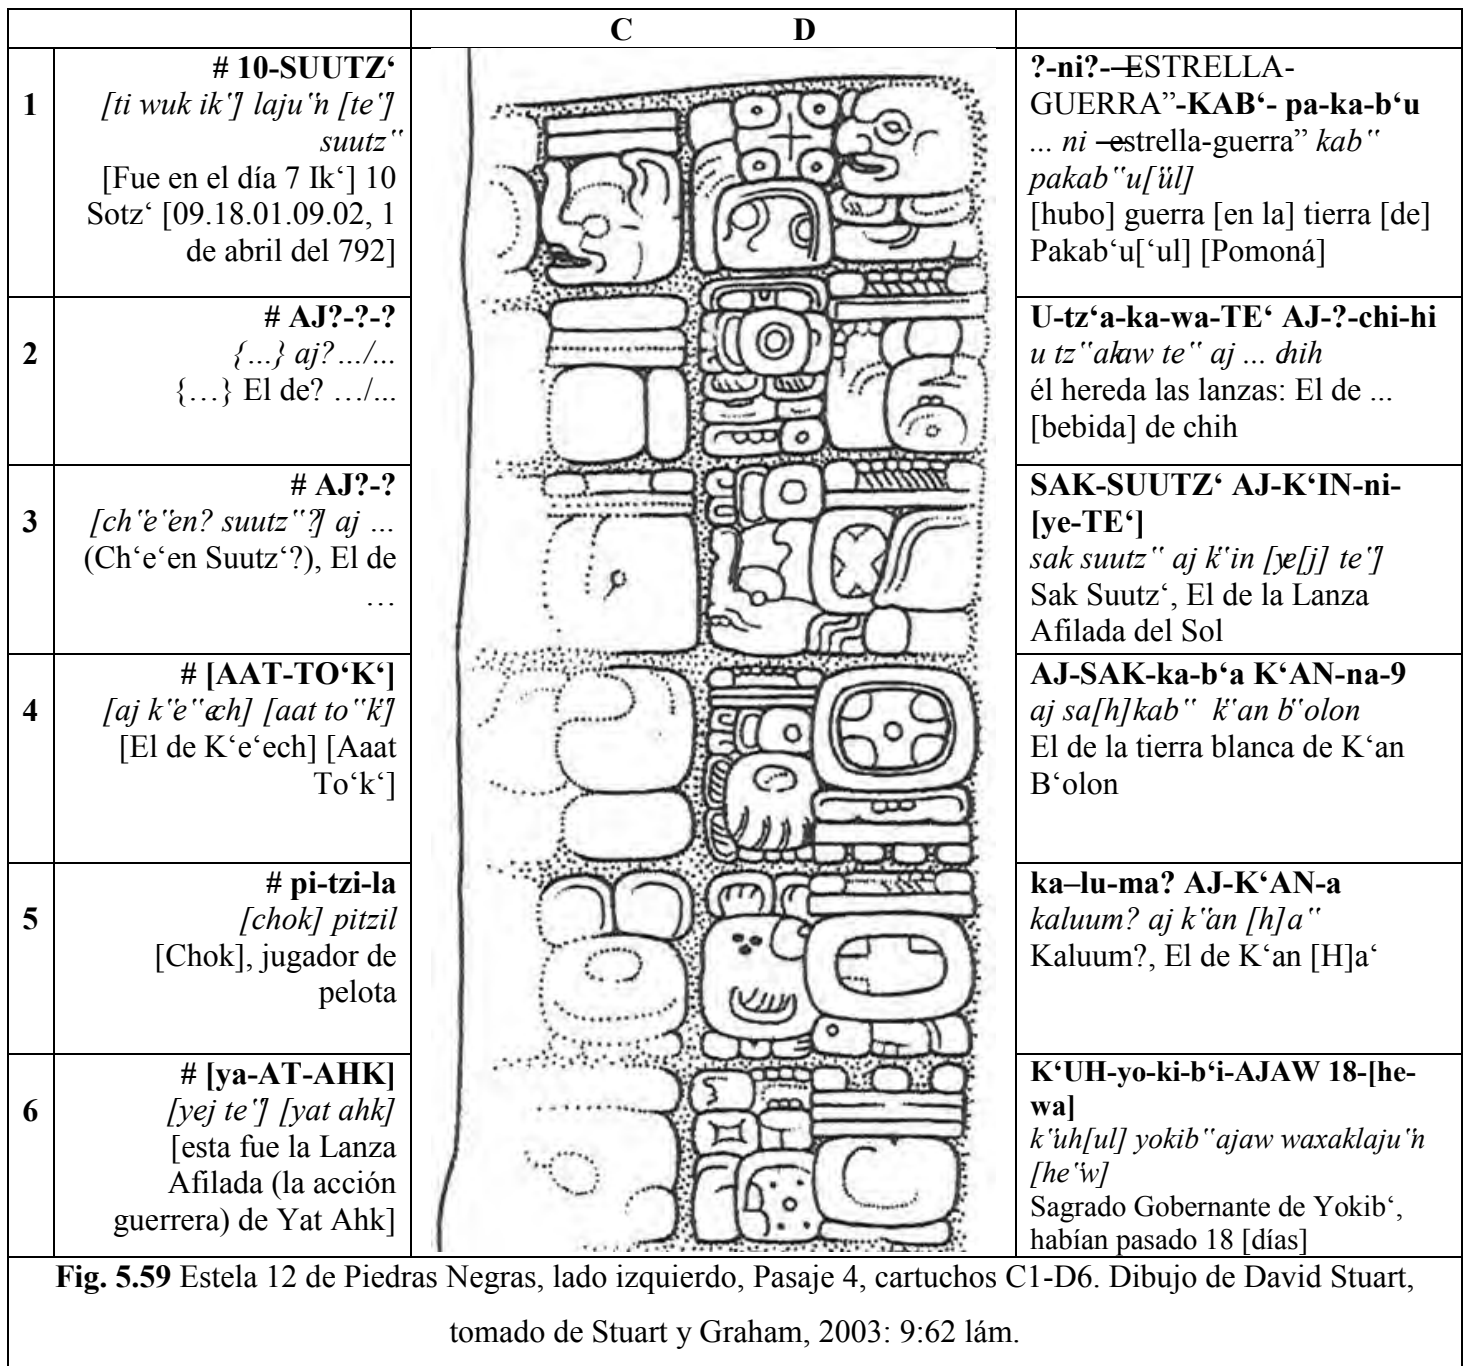 C D
1
# 10-SUUTZ‘
[ti wuk ik‟] laju‟n [te‟]
suutz‟
[Fue en el día 7 Ik‘] 10
Sotz‘ [09.18.01.09.02, 1
de abril del 792]
?-ni?-―ESTRELLA-
GUERRA”-KAB‘- pa-ka-b‘u
... ni ―estrella-guerra” kab‟
pakab‟u[‟ul]
[hubo] guerra [en la] tierra [de]
Pakab‘u[‘ul] [Pomoná]
2
# AJ?-?-?
{...} aj? .../...
{…} El de? …/...
U-tz‘a-ka-wa-TE‘ AJ-?-chi-hi
u tz‟akaw te‟ aj ... chih
él hereda las lanzas: El de ...
[bebida] de chih
3
# AJ?-?
[ch‟e‟en? suutz‟?] aj ...
(Ch‘e‘en Suutz‘?), El de
…
SAK-SUUTZ‘ AJ-K‘IN-ni-
[ye-TE‘]
sak suutz‟ aj k‟in [ye[j] te‟]
Sak Suutz‘, El de la Lanza
Afilada del Sol
4
# [AAT-TO‘K‘]
[aj k‟e‟ech] [aat to‟k‟]
[El de K‘e‘ech] [Aaat
To‘k‘]
AJ-SAK-ka-b‘a K‘AN-na-9
aj sa[h]kab‟ k‟an b‟olon
El de la tierra blanca de K‘an
B‘olon
5
# pi-tzi-la
[chok] pitzil
[Chok], jugador de
pelota
ka–lu-ma? AJ-K‘AN-a
kaluum? aj k‟an [h]a‟
Kaluum?, El de K‘an [H]a‘
6
# [ya-AT-AHK]
[yej te‟] [yat ahk]
[esta fue la Lanza
Afilada (la acción
guerrera) de Yat Ahk]
K‘UH-yo-ki-b‘i-AJAW 18-[he-
wa]
k‟uh[ul] yokib‟ ajaw waxaklaju‟n
[he‟w]
Sagrado Gobernante de Yokib‘,
habían pasado 18 [días]
Fig. 5.59 Estela 12 de Piedras Negras, lado izquierdo, Pasaje 4, cartuchos C1-D6. Dibujo de David Stuart,
tomado de Stuart y Graham, 2003: 9:62 lám.